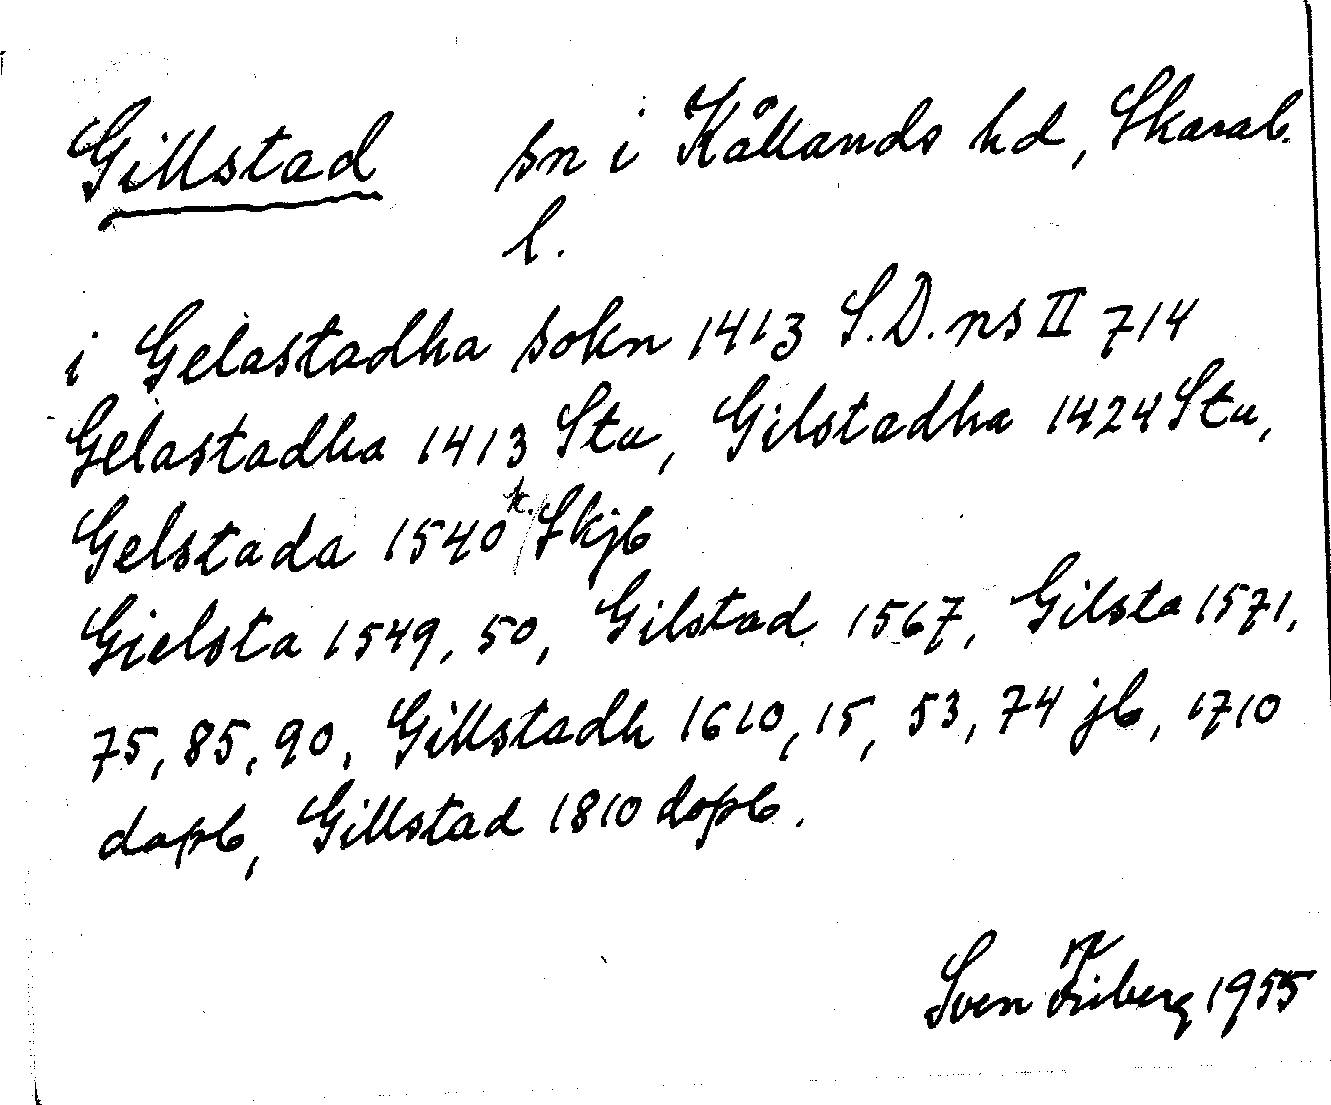 Gillstad sn i Kållands hd, Skarab.
l.
i Gelastadha sokn 1413 S.D. ns II 714
Gelastadha 1413 Stu, Gilstadha 1424 Stu,
Gelstada 1540 k. Skjb
Gielsta 1549, 50, Gilstad 1567, Gilsta 1571,
75, 85, 90, Gillstadh 1610, 15, 53, 74 jb, 1710
dopb, Gillstad 1810 dopb.
Sven Friberg 1955